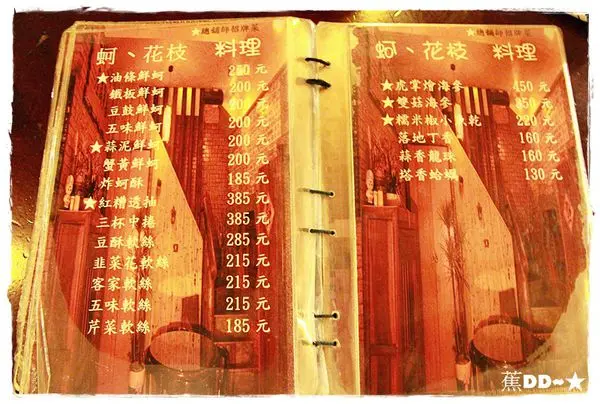 ★總鋪師招牌菜
蚵、花枝 料理
★油條鮮蚵 250元
鐵板鮮蚵 200元
豆鼓鮮蚵 200元
五味鮮蚵 200元
★蒜泥鮮蚵 200元
蟹黃鮮蚵 200元
炸蚵酥 185元
★紅糟透抽 385元
三杯中捲 385元
豆酥軟絲 285元
韭菜花軟絲 215元
客家軟絲 215元
五味軟絲 215元
芹菜軟絲 185元
★總鋪師招牌菜
蚵、花枝 料理
★虎掌燴海參 450元
★雙菇海參 350元
★糯米椒小魚乾 220元
落地丁香 160元
蒜香龍珠 160元
塔香蛤蠣 130元
蕉DD~★